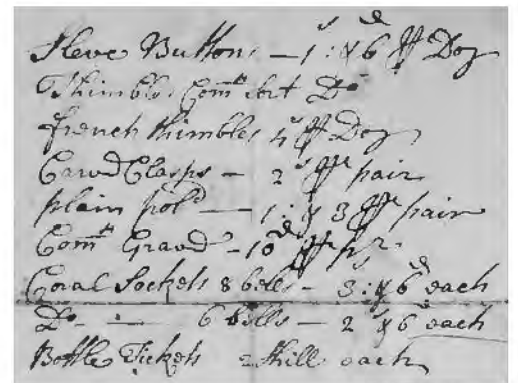 Sleve Buttons — 1s : & 6d ⅌ Doz
Thimbls Comn sort Do
french thimbles 4s ⅌ Doz
Carvd Clasps — 2s ⅌ pair
plain pold — 1 : & 3 ⅌ pair
Comn Gravd — 10d ⅌ pr
Coral Sockets 8 bells — 3s : & 6d each
Do — 6 bells — 2s & 6d each
Bottle Tickets 2 shill each